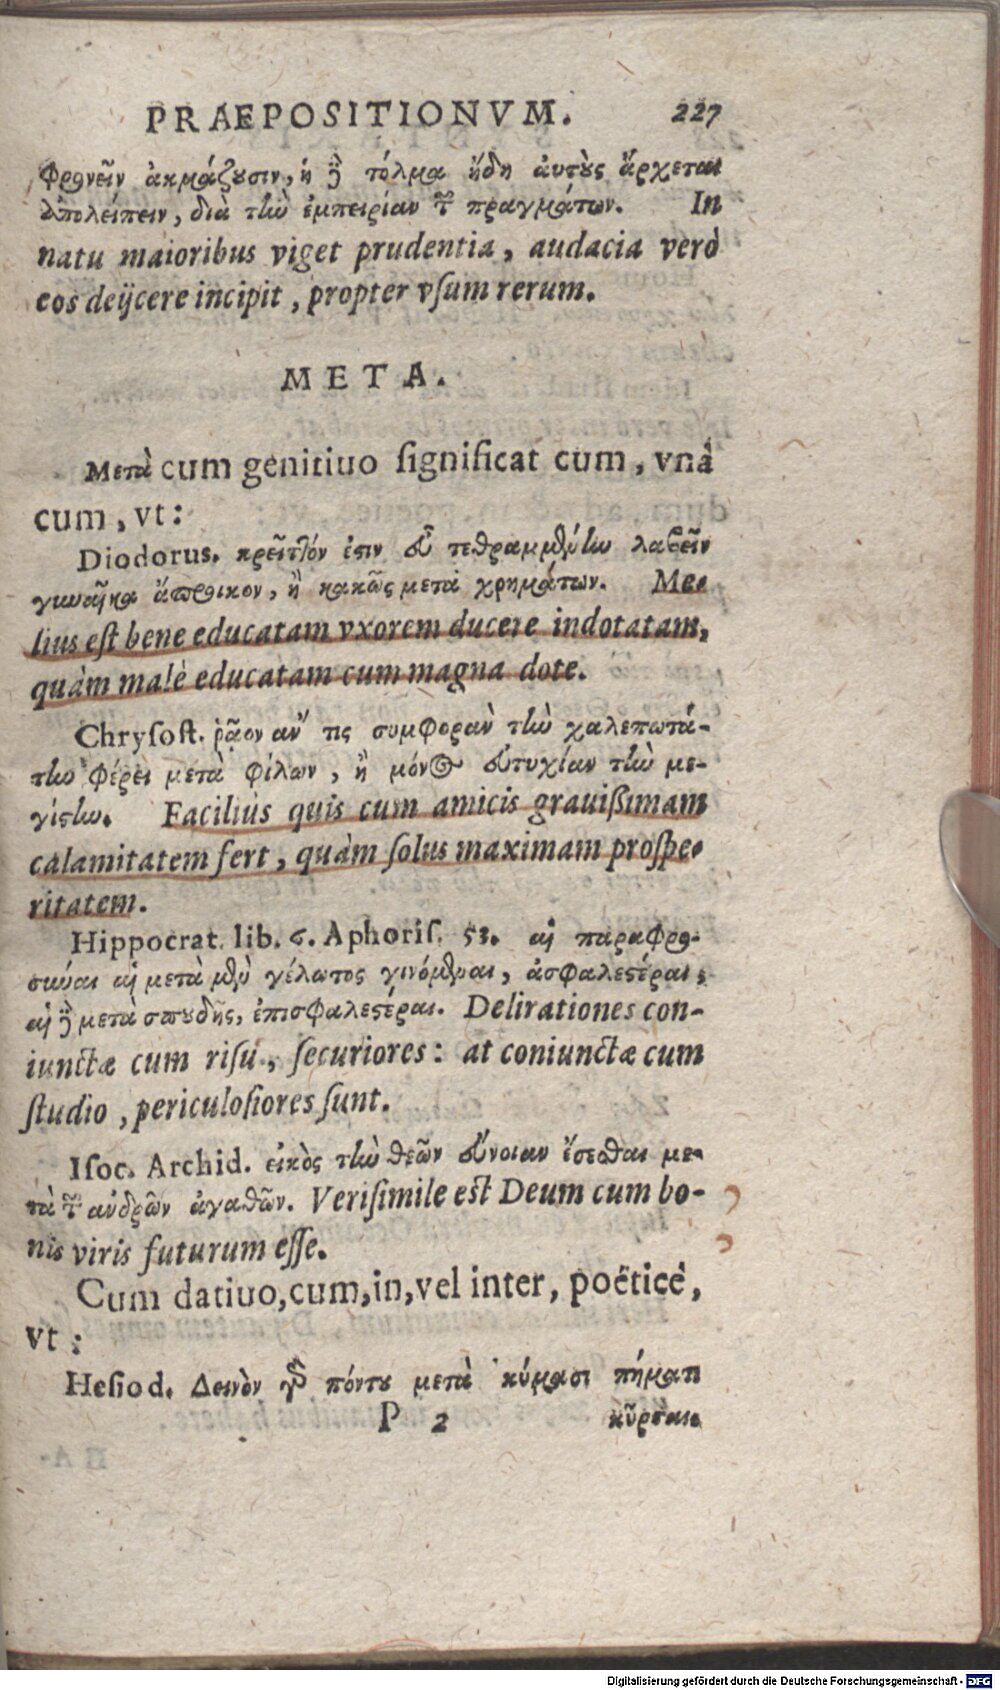 PRAEPOSITIONVM. 227
φρονεῖν ἀκμάζουσιν, ἡ δὲ τόλμα ἤδη αὐτοὺς ἄρχεται
ἀπολείπειν, διὰ τὴν ἐμπειρίαν τῶν πραγμάτων. In
natu maioribus viget prudentia, audacia verò
eos deijcere incipit, propter vſum rerum.
META.
Μετὰ cum genitiuo ſignificat cum, vnà
cum, vt:
Diodorus. κρεῖττόν ἐστιν εὖ τεθραμμένην λαβεῖν
γυναῖκα ἄπροικον, ἢ κακῶς μετὰ χρημάτων. Me-
lius eſt bene educatam vxorem ducere indotatam,
quàm malè educatam cum magna dote.
Chryſoſt. ῥᾷον ἄν τις συμφορὰν τὴν χαλεπωτά-
την φέρει μετὰ φίλων, ἢ μόνος εὐτυχίαν τὴν με-
γίστην. Facilius quis cum amicis grauißimam
calamitatem fert, quàm ſolus maximam proſpe-
ritatem.
Hippocrat. lib. 6. Aphoriſ. 53. αἱ παραφρο-
σύναι αἱ μετὰ μὲν γέλωτος γινόμεναι, ἀσφαλεστέραι,
αἱ δὲ μετὰ σπουδῆς, ἐπισφαλεστέραι. Delirationes con-
iunctæ cum riſu, ſecuriores: at coniunctæ cum
ſtudio, periculoſiores ſunt.
Iſoc. Archid. εἰκὸς τὴν θεῶν εὔνοιαν ἔσεσθαι με-
τὰ τῶν ἀνδρῶν ἀγαθῶν. Veriſimile eſt Deum cum bo-
nis viris futurum eſſe.
Cum datiuo, cum, in, vel inter, poëticè,
vt:
Heſiod. Δεινὸν γὰρ πόντου μετὰ κύμασι πήματι
P 2 κῦρσαι.